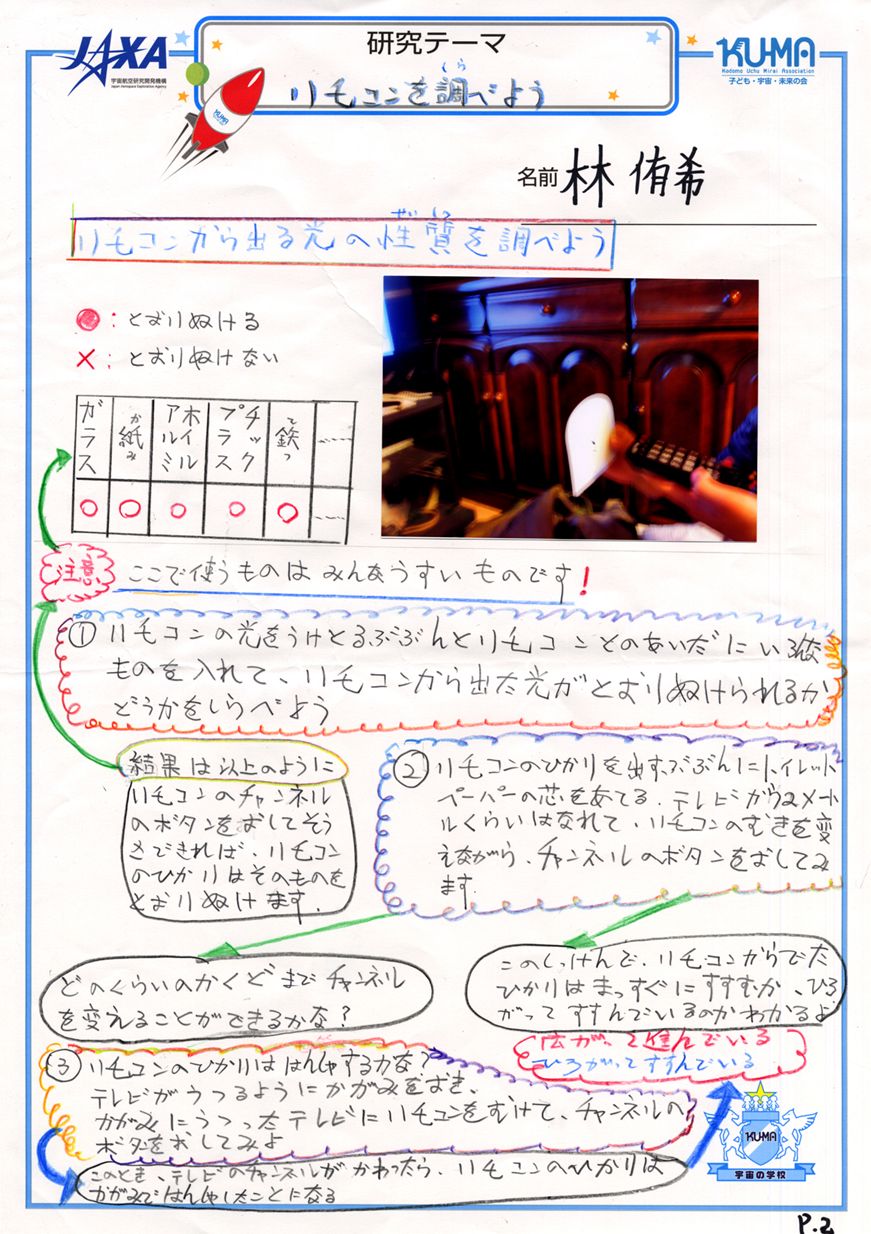 JAXA
宇宙航空研究開発機構
Japan Aerospace Exploration Agency
研究テーマ
しら
リモコンを調べよう
KU-MA
Kodomo Uchu Mirai Association
子ども・宇宙・未来の会
KUMA
名前 林 侑希
せい しつ
リモコンから出る光の性質を調べよう
○：とおりぬける
×：とおりぬけない
ガラス
か紙み
アルミホイル
プラスチック
て鉄つ
……
○ ○ ○ ○ ○ ……
注意
ここで使うものは みんなうすい ものです！
① リモコンの光をうけとるぶぶんとリモコンとのあいだに いろんな
ものを入れて、リモコンから出た光がとおりぬけられるか
どうかをしらべよう
結果は以上のように
リモコンのチャンネル
のボタンをおしてそう
さできれば、リモコン
のひかりはそのものを
とおりぬけます.
② リモコンのひかりを出すぶぶんにトイレット
ペーパーの芯をあてる. テレビから2メート
ルくらいはなれて、リモコンのむきを変
えながら、チャンネルのボタンをおしてみ
ます.
どのくらいのかくどまでチャンネル
を変えることができるかな？
このじっけんで、リモコンからでた
ひかりはまっすぐにすすむか、ひろ
がってすすんでいるのかわかるよ
広がって進んでいる
ひろがってすすんでいる
③ リモコンのひかりは はんしゃするかな？
テレビがうつるようにかがみをおき、
かがみにうつったテレビにリモコンをむけて、チャンネルの
ボタンをおしてみよ
このとき、テレビのチャンネルがかわったら、リモコンのひかりは
かがみではんしゃしたことになる
KUMA
宇宙の学校
P.2